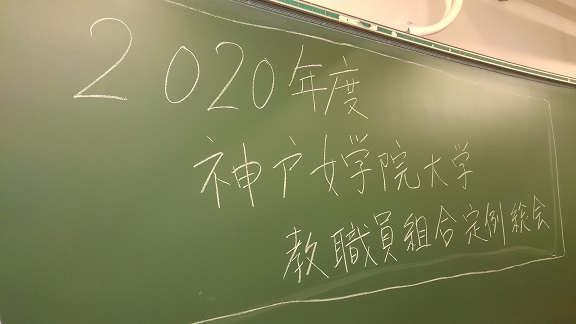 2020年度
神戸女学院大学
教職員組合定例総会